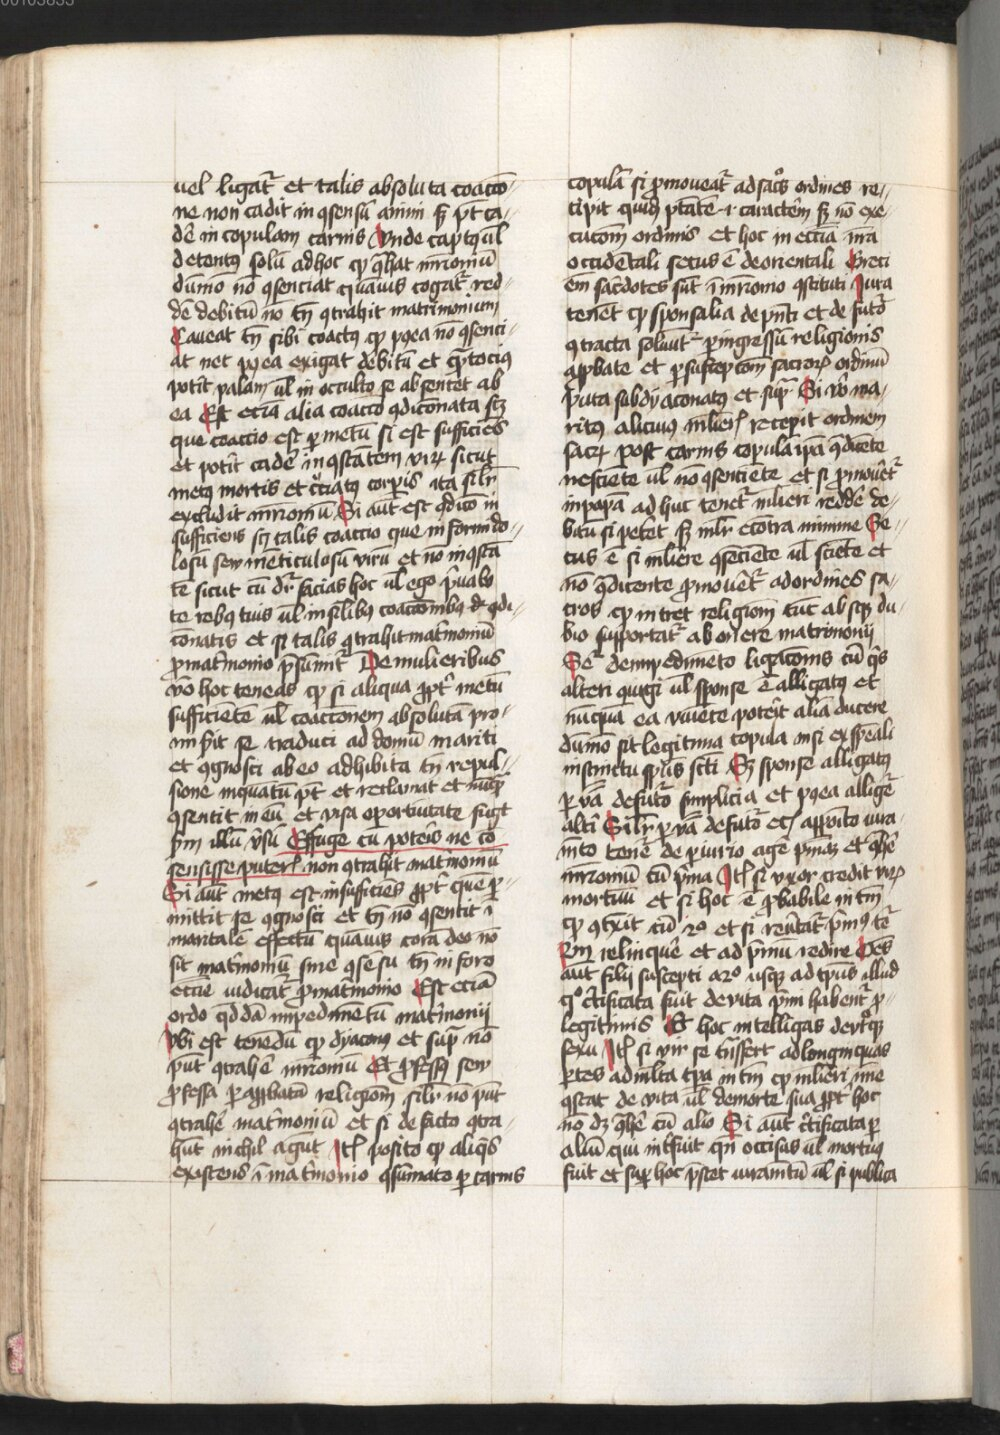 00103855
uel ligat̄ et talis absoluta coactō-
ne non cadit in ꝯsensū animi sꝫ pt̄ ca-
dē in copulam carnis Vnde captꝯ ul̄
detentꝯ solū ad hoc ꝙ ꝯt̄hat mr̄ioniū
dūmō nō ꝯsenciat quāuis cogat̄ red-
dē debitū nō tn̄ ꝯtrahit matrimonium
Caueat tn̄ sibi coactꝰ ꝙ pꝯea nō ꝯsenci-
at nec pꝯea exigat debitū et qn̄tociꝯ
potit̄ palam ul̄ in occulto se absentet ab
ea Est ecia alia coactō ꝯdiconata scꝫ
que coaccio est ꝑ metū si est sufficiēs
et potit̄ cadē in ꝯstātem virꝝ sicut
metꝯ mortis et cͬciatꝯ corporis ita silr̄
excludit mr̄ioniū Si aūt est ꝯdicō in
sufficiens scꝫ talis coaccio que in formido-
losū seu meticulosū virū et nō in ꝯstā
te sicut cū dr̄ facias hoc ul̄ ego pͥuabo
te rebꝯ tuis ul̄ in silibꝯ coactōnibꝯ ꝯdi-
cōnatis et qͥ talis ꝯtrahit mat̄moniū
ꝓ mat̄monio p̄sūmit̄ De mulieribus
v̄o hoc teneas ꝙ si aliqua ꝓpt̄ metū
sufficiētē ul̄ coactōnem absolutā pro-
mis̄it se traduci ad domū mariti
et ꝯgnosci ab eo adhibita tn̄ repul-
sione inquātū pt̄ et reclamat et nūqͣ
ꝯsentit in eū et visa oportuitate fugit
ꝑm illū v̄sū Effuge cū poteris ne cō
sensisse puter̄ non ꝯtrahit mat̄moniū
Si aūt metꝯ est insufficiēs ꝓpt̄ quē ꝑ-
mittit se ꝯgnosci et tn̄ nō ꝯsentit ī
maritalē effectū quāuis corā deo nō
sit mat̄moniū sine ꝯsēsu tn̄ in foro
eccie iudicat̄ ꝓ mat̄monio Est eciā
ordo qͦddā impedimētū mat̄monij
Vbi est tenēdū ꝙ dyaconꝯ et supͣ nō
pn̄t ꝯtrahē mr̄ioniū Et ꝓfessꝯ seu
ꝓfessa ꝑ approbatā religiōm silr̄ nō pn̄t
ꝯtrahē mat̄moniū et si de facto ꝯtra-
hūt nichil agūt Itē posito ꝙ aliqͥs
existens ī mat̄monio ꝯsūmato ꝑ carnis
copulā si ꝓmoueat̄ ad sacͦs ordines re-
cipit quidē ptātē ⁊ caractēm sꝫ nō exe-
cucōm ordinis et hoc in eccīa nr̄a
occidētali secus ē de orientali Greci
em̄ sac̄dotes sūt ī mr̄ionio ꝯstituti Iura
tenēt ꝙ sponsalia de pn̄ti et de futͦo
ꝯtracta soluūt̄ ꝑ ingressū religionis
approbate et ꝑ suscepcōm sacroꝝ ordinū
puta subdyaconatꝯ et supͣ Si v̄o ma-
ritꝯ alicuiꝯ mulierꝭ recepit ordinem
sacꝝ post carnis copulā ip̄a ꝯt̄dicēte
nesciēte ul̄ nō ꝯsenciēte et si ꝓmouēt̄
in papam ad huc tenet̄ mulieri reddē de-
bitū si petet sꝫ mlr̄ econtra minime Se-
cus ē si muliere ꝯsēciēte ul̄ sciēte et
nō ꝯt̄dicente ꝓmouēt̄ ad ordines sa-
cros ꝙ intret religionem tūc absqꝫ du-
bio supportat̄ ab onere matrimonij
Seͬ de impedimēto ligacōnis cū qͥs
alteri ꝯiugi ul̄ sponse ē alligatꝯ et
nūqͣ ea viuēte poterit aliā ducere
dūmō sit legitima copula nisi ex sp̄eali
instinctu sp̄us sc̄ti Sꝫ sponse alligatꝯ
ꝑ v̄a de futͦo simplicia et pꝯea alligeͬ
alti Silr̄ ꝑ v̄a de futͦo etꝭ apposito iura-
mēto tenēt de ꝑiurio ageͬ pn̄iaꝫ et ꝯt̄hē
mr̄ioniū cū pͥma Itē si vxor credit virꝝ
mortuū et si hoc ē ꝓbabile in tm̄
ꝙ ꝯt̄xit cū 2º et si reūtat̄ pͥmꝯ tēͬ
2m̄ relinquē et ad pͥmū redire Oēs
aūt filij suscepti a 2º usqꝫ ad tp̄us illud
qͦ c̄tificata fuit de vita pͥmi habent̄ ꝓ-
legitimis Et hoc intelligas de vtͦqꝫ
sexu Itē si vir se tͣnsfert ad longinquas
ꝑtes ad multa tp̄a in tm̄ ꝙ mulieri nūe
ꝯstat de vita ul̄ de morte sua ꝓpt̄ hoc
nō dꝫ ꝯt̄hē cū alio Si aūt c̄tificata ꝑ
aliū qui int̄fuit qn̄ occisus ul̄ mortuꝯ
fuit et suꝑ hoc p̄stet iuramētū ul̄ si publica